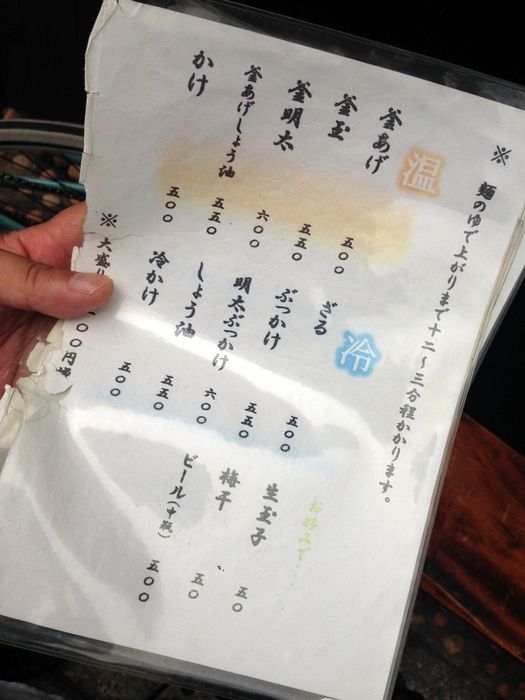 ※ 麺のゆで上がりまで十二〜三分程かかります。
温
釜あげ 五〇〇
釜玉 五五〇
釜明太 六〇〇
釜あげしょう油 五五〇
かけ 五〇〇
冷
ざる 五〇〇
ぶっかけ 五五〇
明太ぶっかけ 六〇〇
しょう油 五五〇
冷かけ 五〇〇
お好みで・・・
生玉子 五〇
梅干 五〇
ビール(中瓶) 五〇〇
※ 大盛り 〇〇円増